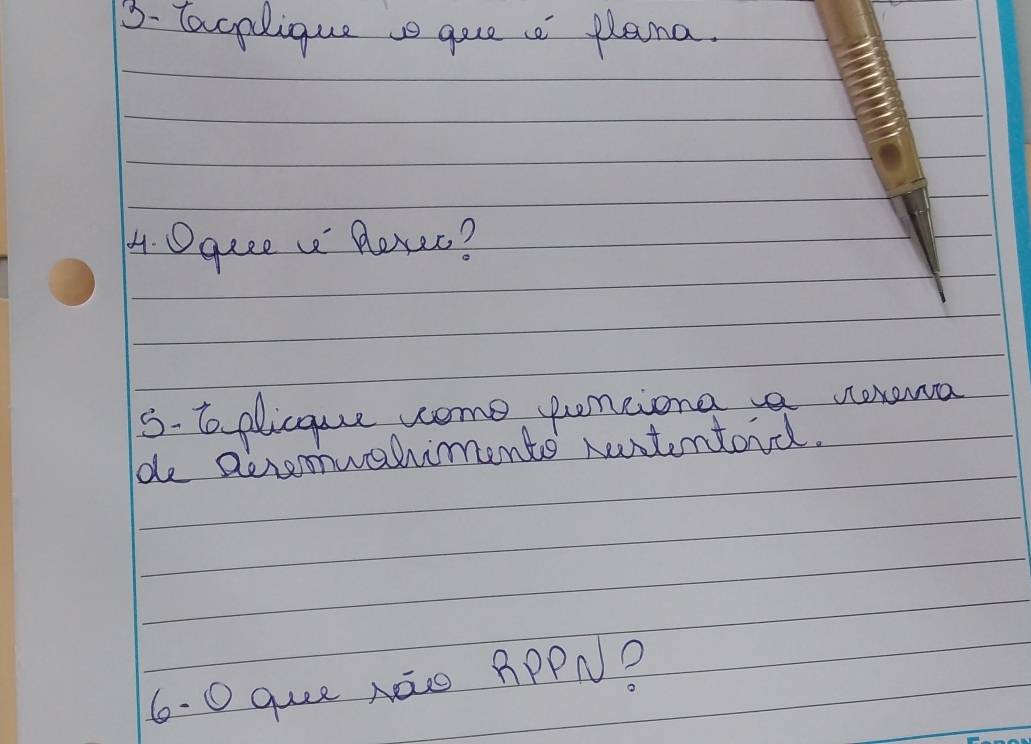 3- Explique o que é flona.
4. O que é Resex?
5- Explique como funciona a reserva
de desemvolvimento sustentável.
6- O que são RPPN?